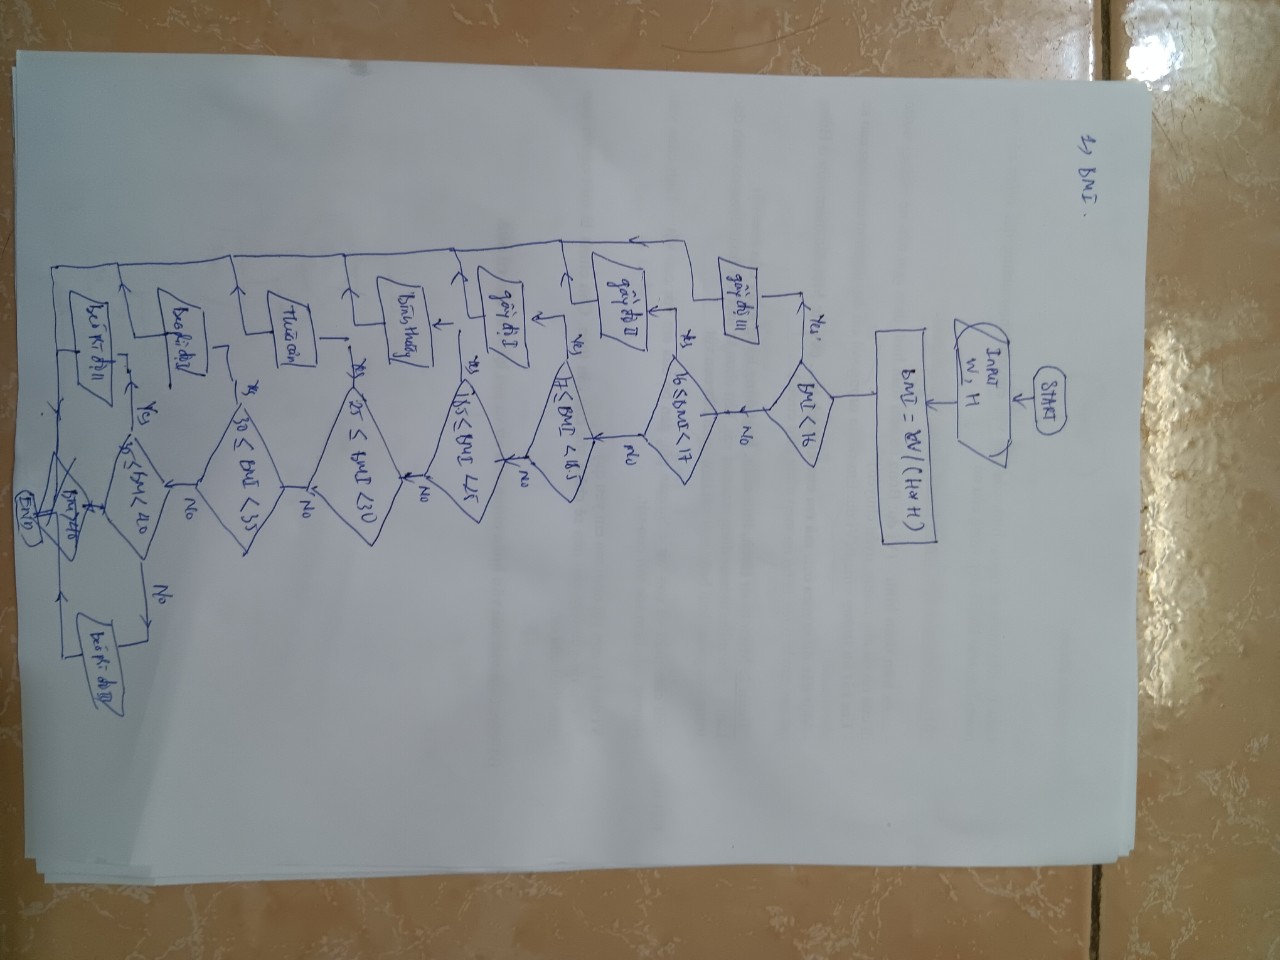 1) BMI.
START
INPUT
W, H
BMI = W/(H*H)
BMI < 16
Yes
gầy độ III
No
16 ≤ BMI < 17
Yes
gầy độ II
No
17 ≤ BMI < 18.5
Yes
gầy độ I
No
18.5 ≤ BMI < 25
Yes
Bình thường
No
25 ≤ BMI < 30
Yes
thừa cân
No
30 ≤ BMI < 35
Yes
Béo phì độ I
No
35 ≤ BMI < 40
Yes
béo phì độ II
No
béo phì độ III
END